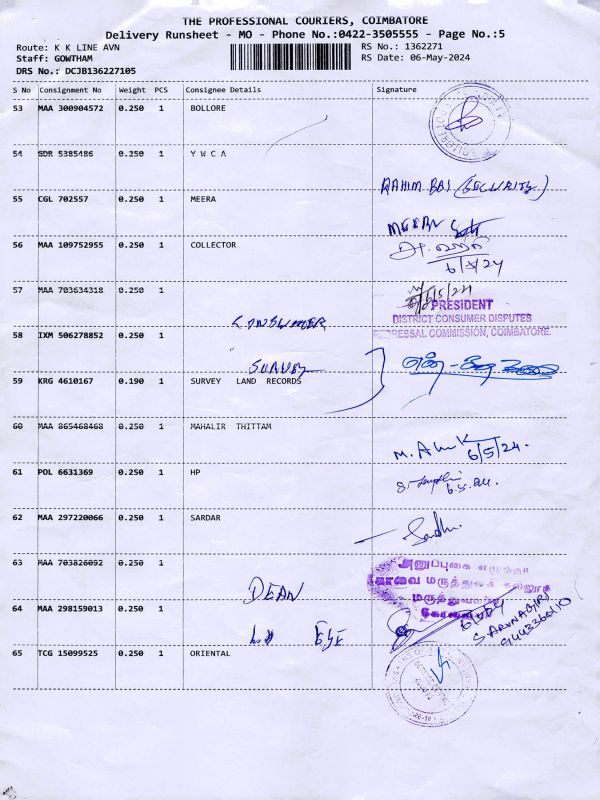 THE PROFESSIONAL COURIERS, COIMBATORE
Delivery Runsheet - MO - Phone No.:0422-3505555 - Page No.:5
Route: K K LINE AVN
RS No.: 1362271
Staff: GOWTHAM
RS Date: 06-May-2024
DRS No.: DCJB136227105
S No Consignment No Weight PCS Consignee Details Signature
53 MAA 300904572 0.250 1 BOLLORE
54 GDR 5385486 0.250 1 Y W C A
RAHIM BBJ (SECURITY)
55 CGL 702557 0.250 1 MEERA
MEERA
56 MAA 109752955 0.250 1 COLLECTOR
6/5/24
57 MAA 703634318 0.250 1
6/5/24
PRESIDENT
DISTRICT CONSUMER DISPUTES
CONSUMER
REDRESSAL COMMISSION, COIMBATORE.
58 IXM 506278852 0.250 1
SURVEY
59 KRG 4610167 0.190 1 SURVEY LAND RECORDS
60 MAA 865468468 0.250 1 MAHALIR THITTAM
6/5/24.
61 POL 6631369 0.250 1 HP
62 MAA 297220066 0.250 1 SARDAR
63 MAA 703826092 0.250 1
கோவை மருத்துவக்
DEAN
64 MAA 298159013 0.250 1
S. ARUNAGIRI
65 TCG 15099525 0.250 1 ORIENTAL